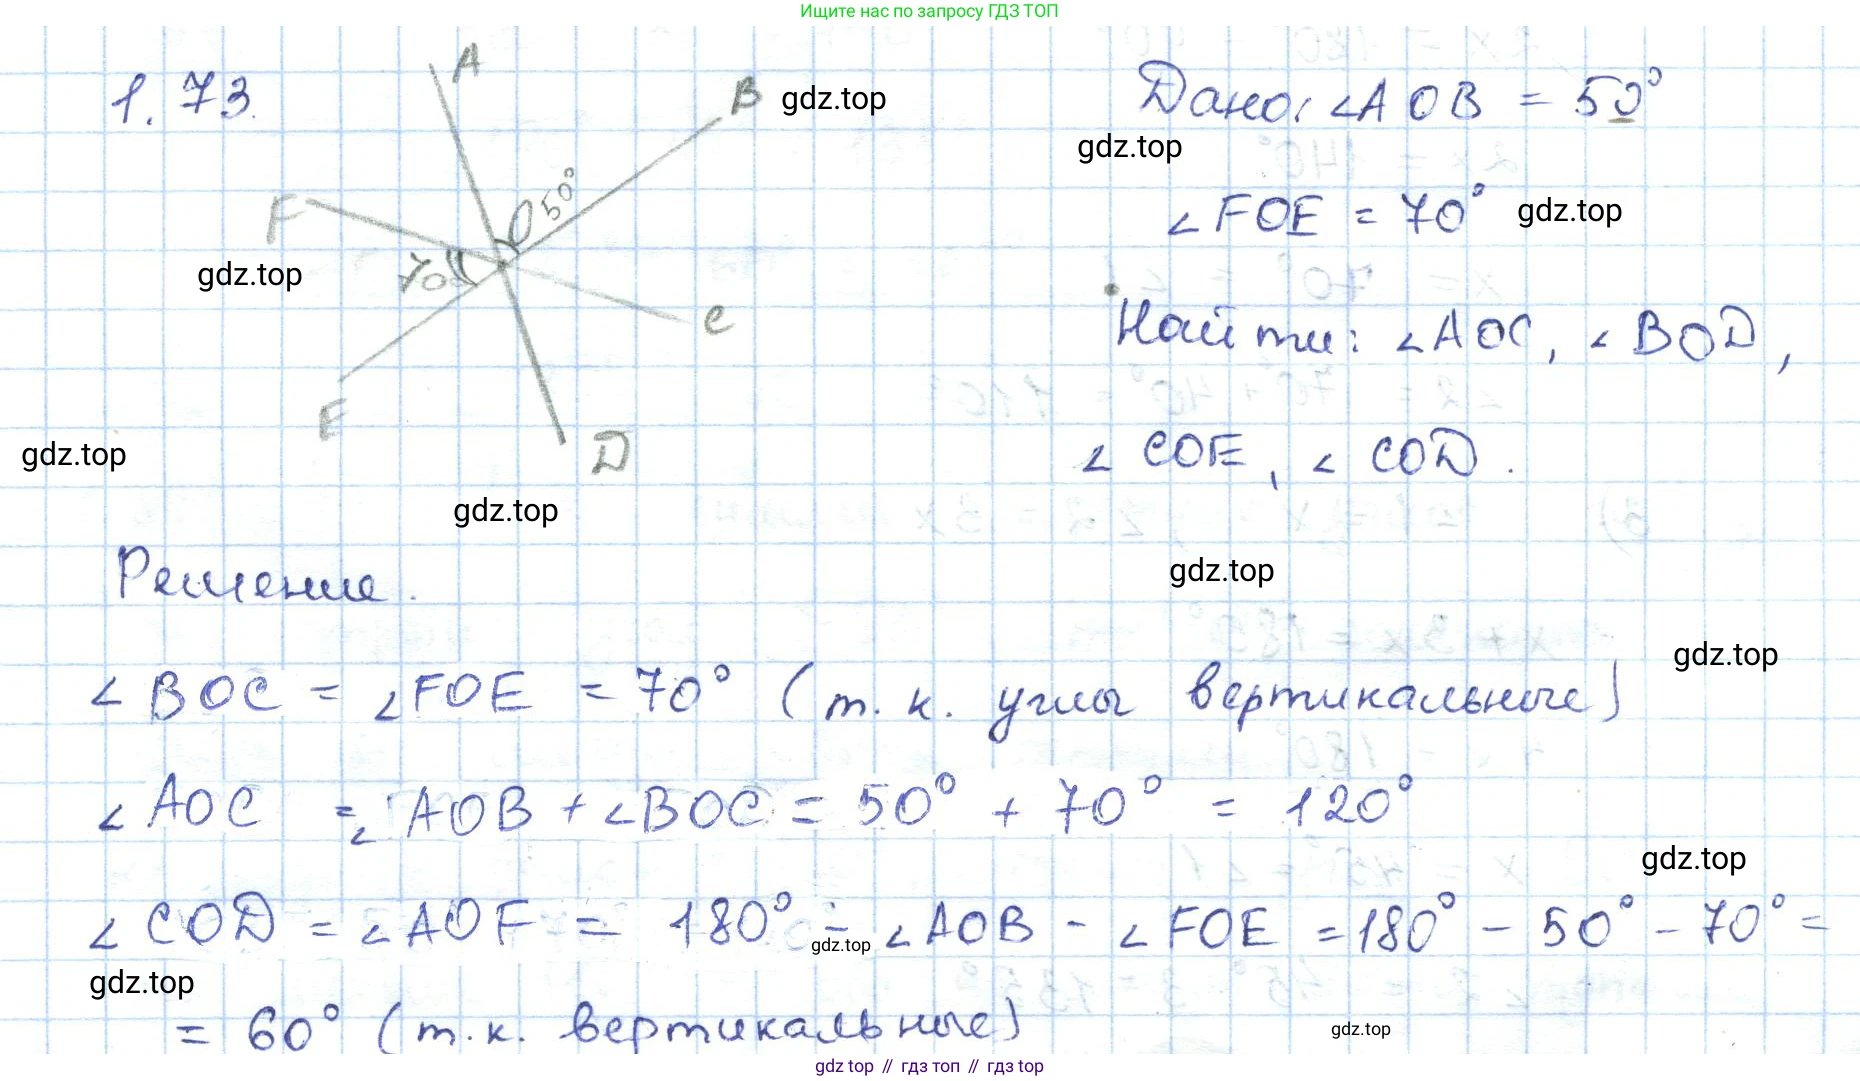 Ищите нас по запросу ГДЗ ТОП
1.73.
A
B
gdz.top
Дано: ∠AOB = 50°
gdz.top
50°
O
F
∠FOE = 70°
gdz.top
gdz.top
70
C
Найти: ∠AOC, ∠BOD,
E
D
gdz.top
∠COE, ∠COD.
gdz.top
Решение.
gdz.top
gdz.top
∠BOC = ∠FOE = 70° (т.к. углы вертикальные)
∠AOC = ∠AOB + ∠BOC = 50° + 70° = 120°
gdz.top
∠COD = ∠AOF = 180° - ∠AOB - ∠FOE = 180° - 50° - 70° =
gdz.top
gdz.top
= 60° (т.к. вертикальные)
gdz.top
gdz top // гдз топ // gdz top